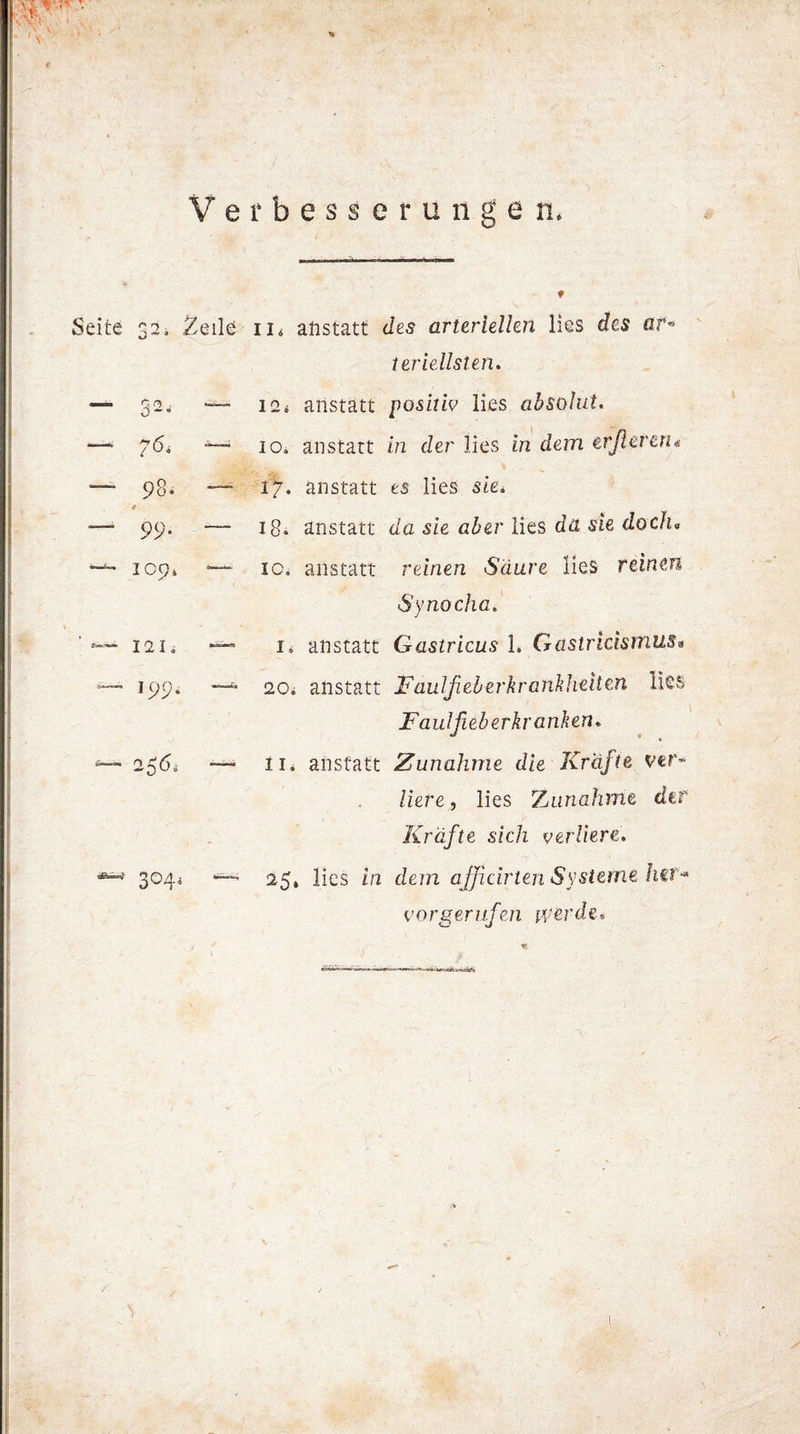 Verbesserungen.
Seite 32. Zeile 11. anstatt des arteriellen lies des ar-
teriellsten.
— 32. — 12. anstatt positiv lies absolut.
— 76. — 10. anstatt in der lies in dem erſteren.
— 98. — 17. anstatt es lies sie.
— 99. — 18. anstatt da sie aber lies da sie doch.
— 109. — 10. anstatt reinen Säure lies reinen
Synocha.
— 121. — 1. anstatt Gastricus l. Gastricismus.
— 199. — 20. anstatt Faulfieberkrankheiten lies
Faulfieberkranken.
— 256. — 11. anstatt Zunahme die Kräfte ver-
liere, lies Zunahme der
Kräfte sich verliere.
— 304. — 25. lies in dem afficirten Systeme her-
vorgerufen werde.